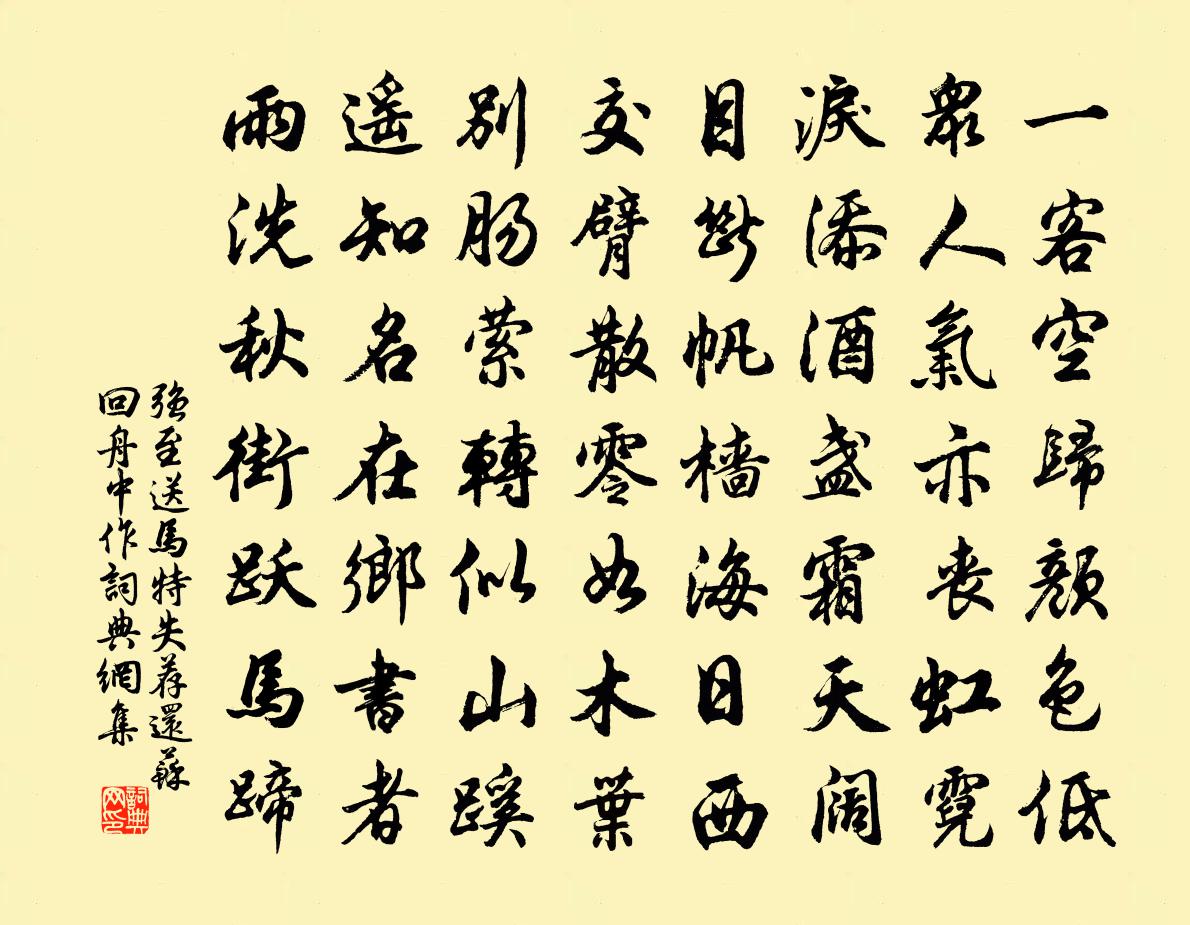 一客空歸顏色低
眾人氣亦喪虹霓
淚添酒盞霜天闊
目斷帆檣海日西
交臂散零如木葉
別腸縈轉似山蹊
遥知名在鄉書者
雨洗秋街躍馬蹄
強至送馬特失荐還蘇
回舟中作詞典網集
詞典
网印